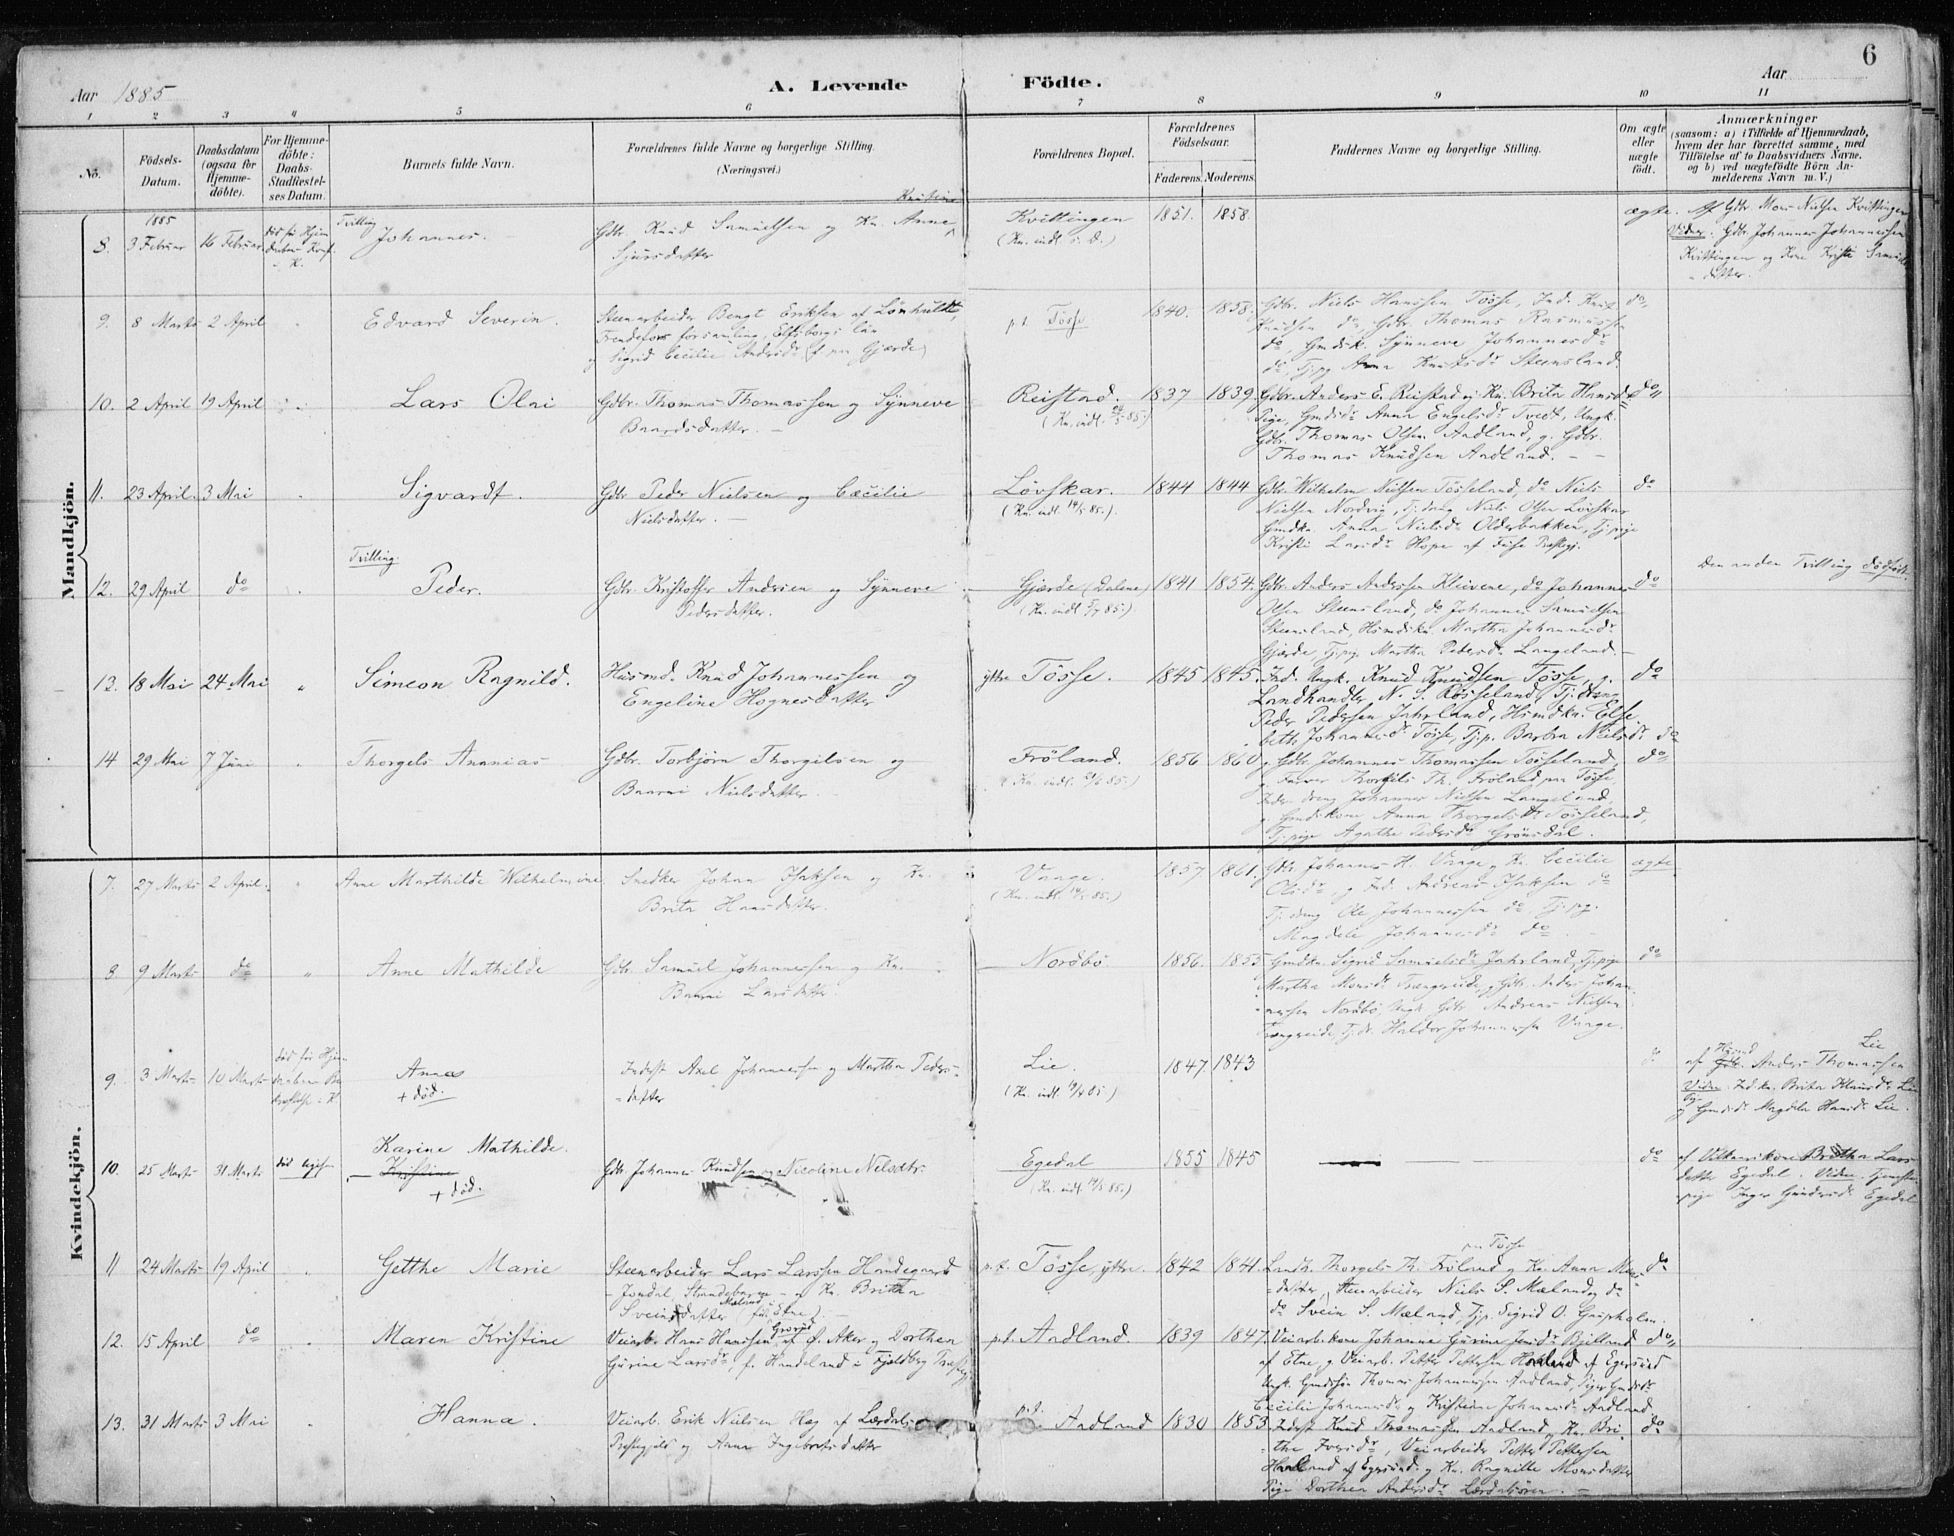 6
Aar 1885
A. Levende
Födte.
Aar
1 2 3 4 5 6 7 8 9 10 11
No.
Födsels-Datum.
Daabsdatum (ogsaa for Hjemme-döbte).
For Hjemme-döbte: Daabs-Stadfæstel-ses Datum.
Barnets fulde Navn.
Forældrenes fulde Navne og borgerlige Stilling.
(Næringsvei.)
Forældrenes Bopæl.
Forældrenes Födselsaar.
Faderens. Moderens.
Faddernes Navne og borgerlige Stilling.
Om ægte eller uægte födt.
Anmærkninger
(saasom: a) i Tilfælde af Hjemmedaab, hvem der har forrettet samme, med Tilföielse af to Daabsvidners Navne, og b) ved uægtefödte Börn An-melderens Navn m. V.)
Mandkjön.
1885
8. 3 Februar 16 Februar
Tvilling
Johannes.
Gdbr. Knud Samuelsen og Kn. Anne Kristine
Sjursdatter
Kvittingen
(Kn. indl. s. D.)
1851. 1858.
ægte.
Af Gdbr. Mons Nielsen Kvittingen
Vidner: Gdbr. Johannes Johannessen
Kvittingen og Kone Kristi Samuels
datter.
9. 8 Marts 2 April
Edvard Severin.
Steenarbeider Bengt Eriksen af Lönhuldt,
Frendefors forsamling, Elfsborgs län
og Sigrid Cecilie Andersdr (f. paa Gjærde)
p.t. Tösse
1840. 1858.
Gdbr. Niels Hanssen Tösse, Ind. Knut
Knudsen do, Gdbr. Thomas Rasmussen
do, Gmdsk. Synneve Johannesdr
do, Tjpg Anna Knutsdr Steensland.
do
10. 2 April 19 April
Lars Olai
Gdbr. Thomas Thomassen og Synneve
Baardsdatter.
Reistad.
1837 1839
Gdbr. Anders E. Reistad og Kn. Brita Hansdr
Pige, Gmdsdr Anna Engelsdr Tvedt, Ungk.
Gdbr. Thomas Olsen Aadland, g. Gdbr.
Thomas Knudsen Aadland.
do
11. 23 April. 3 Mai
Sigvardt.
Gdbr Peder Nielsen og Cæcilie
Nielsdatter.
Lövskar.
(Kn. indl. 14/5 85.)
1844 1844
Gdbr. Wilhelm Nielsen Tösseland, do Niels
Nielsen Nordvig, Tj.dreng Niels Olsen Lövskar
Gmdkn. Anna Nielsdr Olderbakken, Tj.pige
Kristi Larsdr Hope af Fuse Præstegj.
do
Tvilling.
12. 29 April do
Peder.
Gdbr. Kristoffer Andersen og Synneve
Pedersdatter.
Gjærde (Dalene)
(Kn. indl. 5/7 85.)
1841 1854.
Gdbr. Anders Anderssen Kleivene, do Johannes
Olsen Steensland, do Johannes Samuelsen
Steensland, Hsmdskn. Martha Johannesdr
Gjærde, Tj.pig Martha Pedersdr Langeland.
do
Den anden Tvilling dödfödt.
13. 18 Mai 24 Mai
Simeon Ragnild.
Husmd. Knud Johannessen og
Engeline Hognesdatter
ytre Tösse.
1845 1845.
Ind. Ungk. Knud Knudsen Tösse, g.
Landhandler N. S. Rösseland, Tj.dreng
Peder Pedersen Jahrland, Hsmdkn. Else
beth Johannesdr Tösse, Tj.p. Barbra Nielsdr do
do
14 29 Mai 7 Juni
Thorgels Ananias
Gdbr. Torbjörn Thorgilsen og
Baarni Nielsdatter.
Fröland.
1856 1860
g. Gdbr. Johannes Thomassen Tösseland,
g. Farver Thorgils Th. Fröland paa Tösse,
Inder. dreng Johannes Nielsen Langeland,
g Gmdskone Anna Thorgelsdr Tösseland,
Tj.pige Agathe Pedersdr Grönsdal.
do
Kvindekjön.
7. 27 Marts 2 April.
Anne Marthilde Wilhelmine
Snedker Johan Isaksen og Kn.
Brita Hansdatter.
Vaage.
1857 1861.
Gdbr Johannes H. Vaage, Kn. Cecilie
Olsdr, g Ind. Andreas Isaksen do
Tj.dreng Ole Johannessen do, Tj.pg.
Magdele Johannesdr do
ægte
8. 9 Marts do
Anne Mathilde
Gdbr. Samuel Johannessen og Kn.
Baarni Larsdatter.
Nordbö
1856. 1855
Gmdkn. Sigrid Samuelsdr Jahrland, Tj.pige
Martha Monsdr Trængereide, g Gdbr. Anders Johan-
nessen Nordbö, Ungk. Gdbr. Andreas Nielsen
Trængereide, Tj.dr. Haldor Johannessen Vaage.
do
9. 3 Marts 10 Marts
Anna
+ död.
Inderst Axel Johannessen og Martha Peders-
datter
Lie.
1847 1843
do
af Husmd Anders Thomassen Lie
Vidne: Ind.kn. Brita Klausdr Lie
og Gmdsdr Magdela Hansdr Lie.
10. 25 Marts 31 Marts
död
Karine Mathilde.
Kristine
+ död.
Gdbr. Johannes Knudsen og Nicoline Nielsdtr.
Egedal
1855 1845
do
af Vilkaarskone Britha Lars
datter Egedal. Vidne: Tjeneste
pige Inger Gundersdr Egedal
11 24 Marts 19 April
Getthe Marie
Steenarbeider Lars Larssen Handegaard
Jondal, Strandebarm og Kn. Britha
Sveinsdatter Mæland fra Etne)
p.t. Tösse, ytre.
1842 1841.
Landh. Thorgels Th. Fröland paa Tösse og Kn. Anna Mons
datter, Steenarbeider Niels S. Mæland, do
do Svein S. Mæland, Tjp. Sigrid O. Gnupholm.
do
12. 15 April do
Maren Kristine
Veiarb. Hans Hanssen Grorud af Ö. Aker og Dorthea
Gurine Larsdr, f. Handeland i Fjeldberg Præstegj.
p.t. Aadland.
1839 1847.
Veiarb.kone Johanne Gurine Jensdr Bjelland
af Etne, g Veiarb. Petter Pettersen Hovland af Egersund
Ungk. Gmdssön Thomas Johannessen Aadland, Piger Gmdsdr
Cecilie Johannesdr og Kristiane Johannesdr Aadland
do
13. 31 Marts 3 Mai
Hanna.
Veiarb. Erik Nielsen Hæg af Lærdals
Præstegjeld og Anna Ingebretsdatter
p.t. Aadland
1830 1853.
Inderst Knud Thomassen Aadland, Kn. Bri-
the Iversdr, Veiarbeider Petter Pettersen
Hovland af Egersund, g Kn. Ragnille Monsdatter
Pige Dorthea Andersdr Lærdalsören.
do